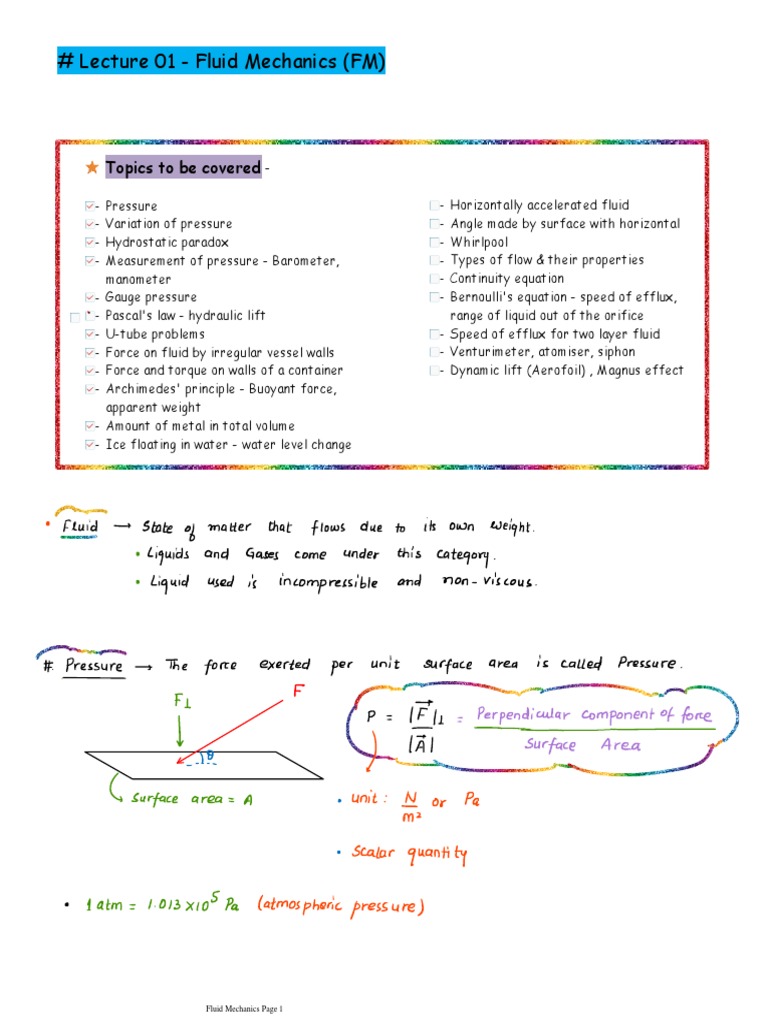 # Lecture 01 - Fluid Mechanics (FM)
★ Topics to be covered -
- Pressure
- Variation of pressure
- Hydrostatic paradox
- Measurement of pressure - Barometer,
manometer
- Gauge pressure
- Pascal's law - hydraulic lift
- U-tube problems
- Force on fluid by irregular vessel walls
- Force and torque on walls of a container
- Archimedes' principle - Buoyant force,
apparent weight
- Amount of metal in total volume
- Ice floating in water - water level change
- Horizontally accelerated fluid
- Angle made by surface with horizontal
- Whirlpool
- Types of flow & their properties
- Continuity equation
- Bernoulli's equation - speed of efflux,
range of liquid out of the orifice
- Speed of efflux for two layer fluid
- Venturimeter, atomiser, siphon
- Dynamic lift (Aerofoil) , Magnus effect
• Fluid → State of matter that flows due to its own weight.
• Liquids and Gases come under this category.
• Liquid used is incompressible and non-viscous.
# Pressure → The force exerted per unit surface area is called Pressure.
F⊥
F
θ
surface area = A
P = |F⃗|⊥ / |A⃗| = Perpendicular component of force / Surface Area
• unit : N/m² or Pa
• Scalar quantity
• 1 atm = 1.013 × 10⁵ Pa (atmospheric pressure)
Fluid Mechanics Page 1